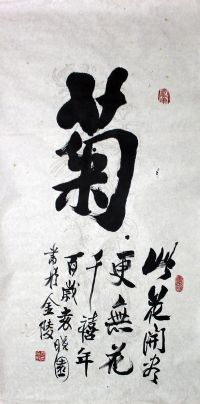 菊
此花開尽
更無花
千禧年
百歲袁晓園
書於金陵